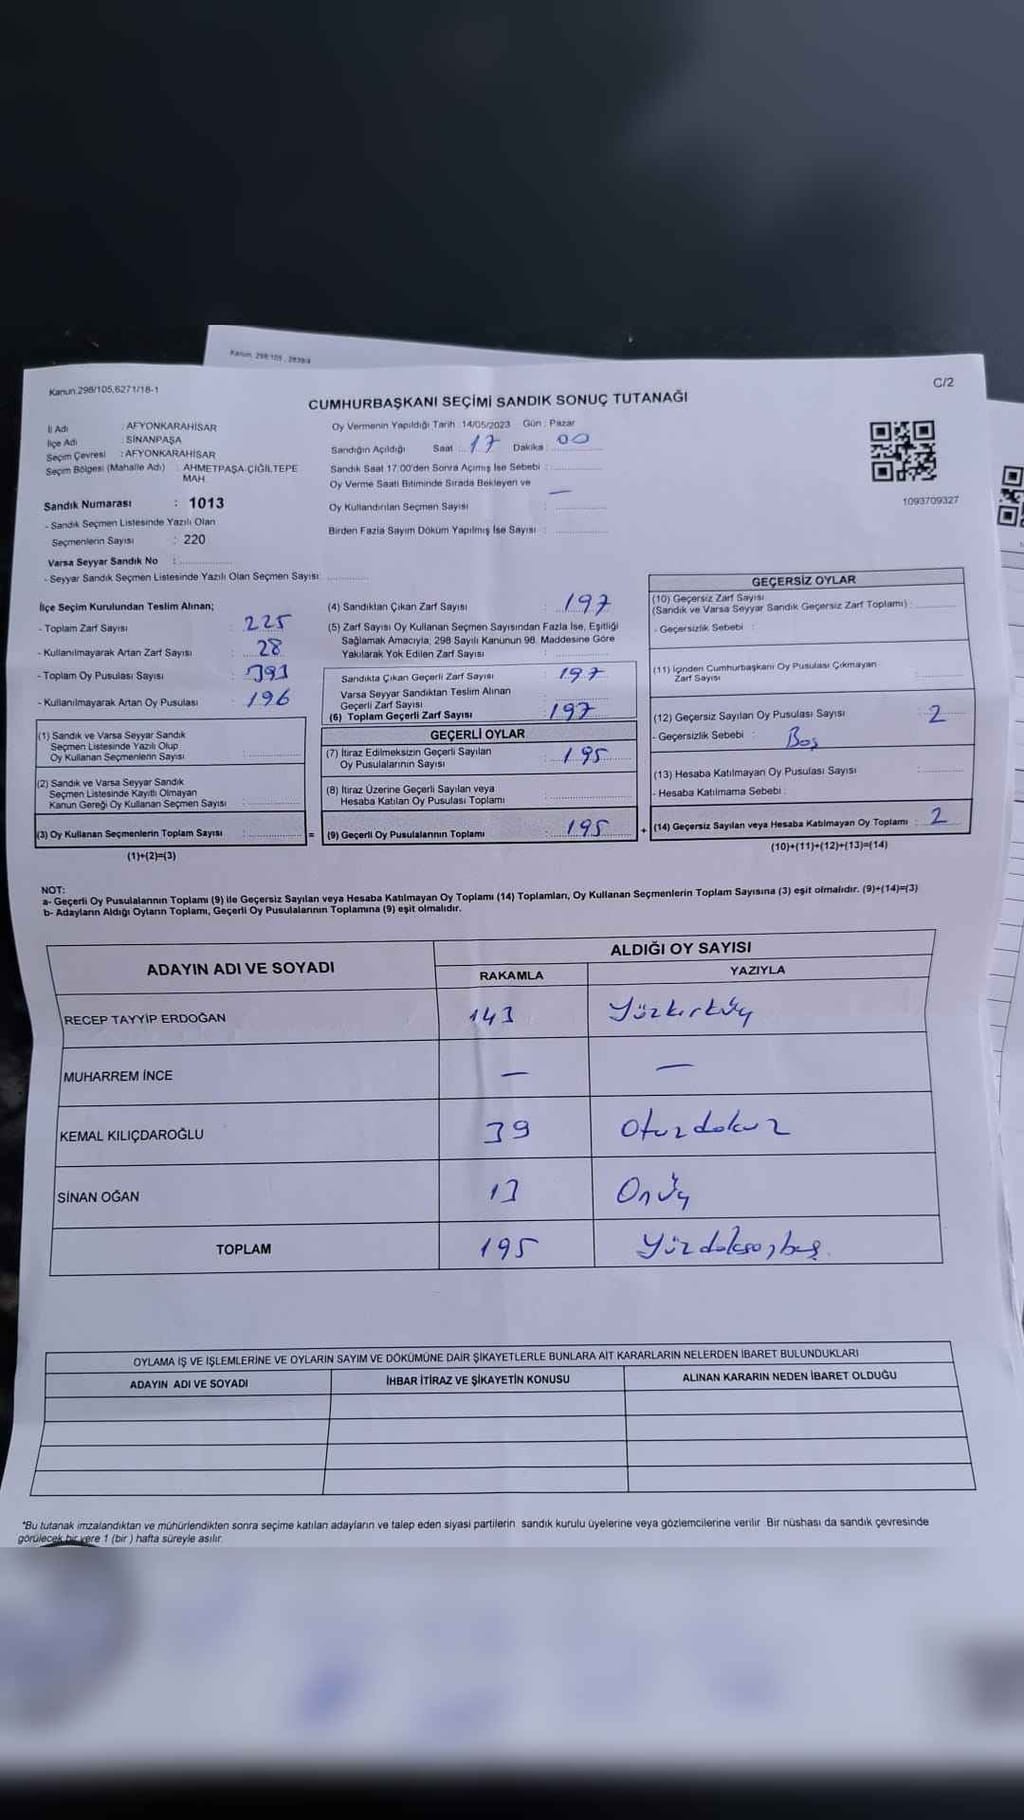 Kanun, 298/105
Kanun.298/105,6271/18-1
C/2
CUMHURBAŞKANI SEÇİMİ SANDIK SONUÇ TUTANAĞI
İl Adı : AFYONKARAHİSAR
İlçe Adı : SİNANPAŞA
Seçim Çevresi : AFYONKARAHİSAR
Seçim Bölgesi (Mahalle Adı) : AHMETPAŞA-ÇİĞİLTEPE
MAH
Sandık Numarası : 1013
- Sandık Seçmen Listesinde Yazılı Olan
Seçmenlerin Sayısı : 220
Varsa Seyyar Sandık No :
- Seyyar Sandık Seçmen Listesinde Yazılı Olan Seçmen Sayısı
Oy Vermenin Yapıldığı Tarih : 14/05/2023 Gün : Pazar
Sandığın Açıldığı Saat : 17 Dakika : 00
Sandık Saat 17:00'den Sonra Açımış İse Sebebi :
Oy Verme Saati Bitiminde Sırada Bekleyen ve
Oy Kullandırılan Seçmen Sayısı : —
Birden Fazla Sayım Döküm Yapılmış İse Sayısı :
1093709327
İlçe Seçim Kurulundan Teslim Alınan;
- Toplam Zarf Sayısı : 225
- Kullanılmayarak Artan Zarf Sayısı : 28
- Toplam Oy Pusulası Sayısı : 391
- Kullanılmayarak Artan Oy Pusulası : 196
(1) Sandık ve Varsa Seyyar Sandık
Seçmen Listesinde Yazılı Olup
Oy Kullanan Seçmenlerin Sayısı :
(2) Sandık ve Varsa Seyyar Sandık
Seçmen Listesinde Kayıtlı Olmayan
Kanun Gereği Oy Kullanan Seçmen Sayısı :
(3) Oy Kullanan Seçmenlerin Toplam Sayısı :
(1)+(2)=(3)
=
(4) Sandıktan Çıkan Zarf Sayısı : 197
(5) Zarf Sayısı Oy Kullanan Seçmen Sayısından Fazla İse, Eşitliği
Sağlamak Amacıyla; 298 Sayılı Kanunun 98. Maddesine Göre
Yakılarak Yok Edilen Zarf Sayısı :
Sandıkta Çıkan Geçerli Zarf Sayısı : 197
Varsa Seyyar Sandıktan Teslim Alınan
Geçerli Zarf Sayısı
(6) Toplam Geçerli Zarf Sayısı : 197
GEÇERLİ OYLAR
(7) İtiraz Edilmeksizin Geçerli Sayılan
Oy Pusulalarının Sayısı : 195
(8) İtiraz Üzerine Geçerli Sayılan veya
Hesaba Katılan Oy Pusulası Toplamı :
(9) Geçerli Oy Pusulalarının Toplamı : 195
+
GEÇERSİZ OYLAR
(10) Geçersiz Zarf Sayısı
(Sandık ve Varsa Seyyar Sandık Geçersiz Zarf Toplamı) :
- Geçersizlik Sebebi :
(11) İçinden Cumhurbaşkanı Oy Pusulası Çıkmayan
Zarf Sayısı :
(12) Geçersiz Sayılan Oy Pusulası Sayısı : 2
- Geçersizlik Sebebi : Boş
(13) Hesaba Katılmayan Oy Pusulası Sayısı :
- Hesaba Katılmama Sebebi :
(14) Geçersiz Sayılan veya Hesaba Katılmayan Oy Toplamı : 2
(10)+(11)+(12)+(13)=(14)
NOT:
a- Geçerli Oy Pusulalarının Toplamı (9) ile Geçersiz Sayılan veya Hesaba Katılmayan Oy Toplamı (14) Toplamları, Oy Kullanan Seçmenlerin Toplam Sayısına (3) eşit olmalıdır. (9)+(14)=(3)
b- Adayların Aldığı Oyların Toplamı, Geçerli Oy Pusulalarının Toplamına (9) eşit olmalıdır.
ADAYIN ADI VE SOYADI
ALDIĞI OY SAYISI
RAKAMLA YAZIYLA
RECEP TAYYİP ERDOĞAN 143 Yüzkırküç
MUHARREM İNCE — —
KEMAL KILIÇDAROĞLU 39 Otuzdokuz
SİNAN OĞAN 13 Onüç
TOPLAM 195 Yüzdoksanbeş
OYLAMA İŞ VE İŞLEMLERİNE VE OYLARIN SAYIM VE DÖKÜMÜNE DAİR ŞİKAYETLERLE BUNLARA AİT KARARLARIN NELERDEN İBARET BULUNDUKLARI
ADAYIN ADI VE SOYADI İHBAR İTİRAZ VE ŞİKAYETİN KONUSU ALINAN KARARIN NEDEN İBARET OLDUĞU
*Bu tutanak imzalandıktan ve mühürlendikten sonra seçime katılan adayların ve talep eden siyasi partilerin sandık kurulu üyelerine veya gözlemcilerine verilir. Bir nüshası da sandık çevresinde
görülecek bir yere 1 (bir) hafta süreyle asılır.